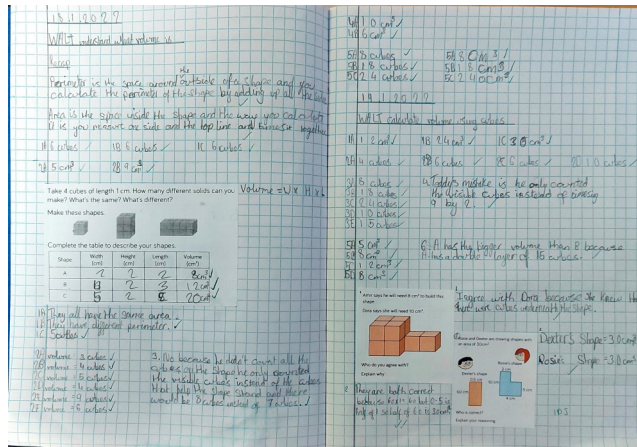 18.1.2022
WALT understand what volume is
Recap
Perimeter is the space around the outside of a shape and you
calculate the perimeter of the shape by adding up all the sides
Area is the space inside the shape and the way you calculate
it is you measure one side and the top line and times it together
1A 6 cubes 1B 6 cubes 1C 6 cubes
2A 5cm³ 2B 9cm³
Take 4 cubes of length 1cm. How many different solids can you
make? What's the same? What's different?
Volume = W x H x L
Make these shapes.
Complete the table to describe your shapes.
Shape Width (cm) Height (cm) Length (cm) Volume (cm³)
A 2 2 2 8cm³
B 2 3 12cm³
C 5 2 20cm³
1A They all have the same area.
1B They have different perimeter.
1C 5 cubes
2A volume = 3 cubes
2B volume = 4 cubes
2C volume = 5 cubes
2D volume = 4 cubes
2E volume = 9 cubes
2F volume = 6 cubes
3. No because he didn't count all the
cubes on the shape he only counted
the visible cubes instead of the cubes
that help the shape stand and there
would be 8 cubes instead of 7 cubes.
4A 10cm³
4B 6cm³
5A 8 cubes
5B 18 cubes
5C 24 cubes
5A 8cm³
5B 18cm³
5C 24cm³
19.1.2022
WALT calculate volume using cubes
1A 12cm³ 1B 24cm³ 1C 36cm³
2A 4 cubes 2B 6 cubes 2C 6 cubes 2D 10 cubes
3A 8 cubes
3B 18 cubes
3C 24 cubes
3D 10 cubes
3E 15 cubes
4. Teddy's mistake is he only counted
the visible cubes instead of timesing
9 by 2.
5A 5cm³
5B 8cm³
5C 12cm³
5D 8cm³
6. A has the bigger volume than B because
A has a double layer of 15 cubes.
Amir says he will need 8 cm³ to build this
shape.
Dora says she will need 10 cm³.
Who do you agree with?
Explain why.
I agree with Dora because she knew that
there were cubes underneath the shape.
Rosie and Dexter are drawing shapes with
an area of 30cm²
Dexter's shape
Rosie's shape
Who is correct?
Explain your reasoning.
Dexter's Shape = 30cm²
Rosie's Shape = 30cm²
2. They are both correct